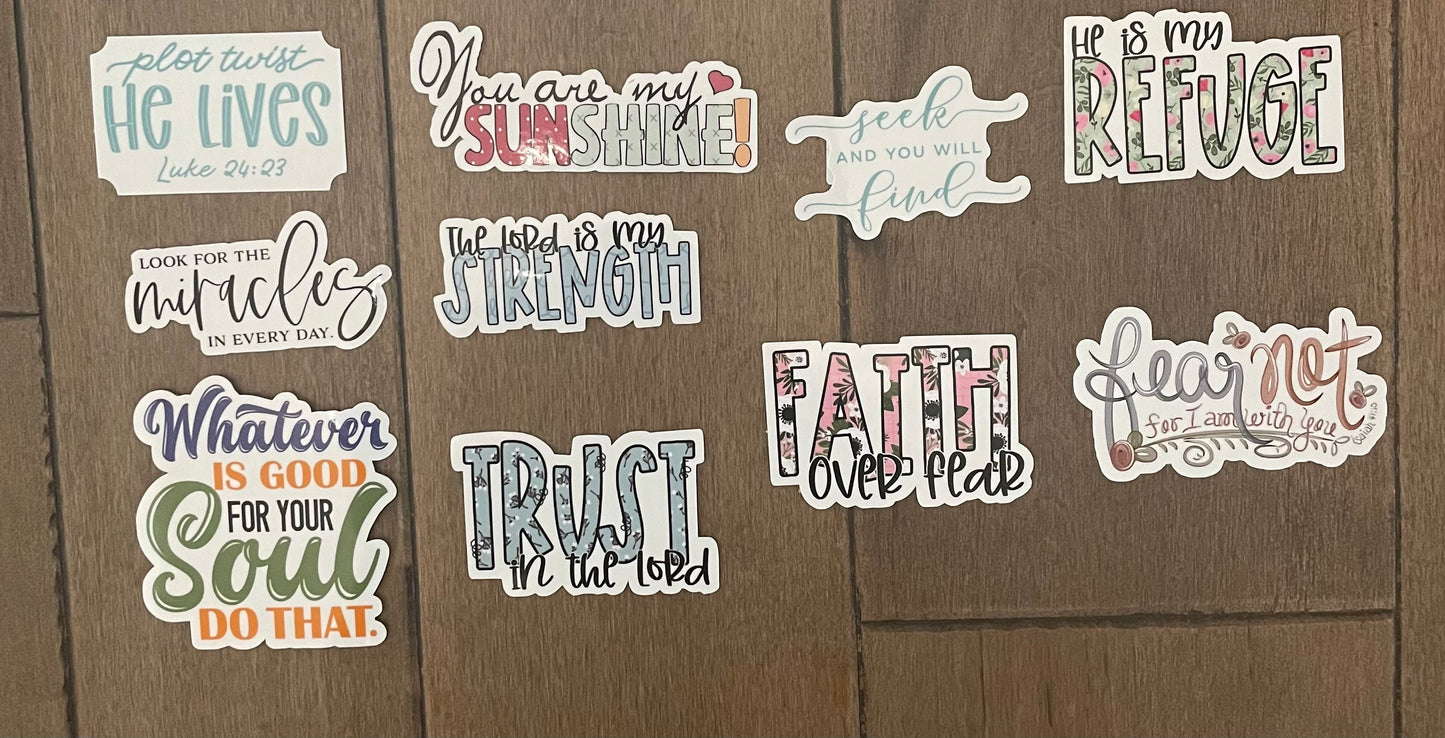 plot twist
He Lives
Luke 24:23
You are my
SUNSHINE!
seek
AND YOU WILL
find
He is my
REFUGE
LOOK FOR THE
miracles
IN EVERY DAY.
The Lord is my
STRENGTH
FAITH
over fear
fear not
for I am with you
Isaiah 41:10
Whatever
IS GOOD
FOR YOUR
Soul
DO THAT.
TRUST
in the Lord